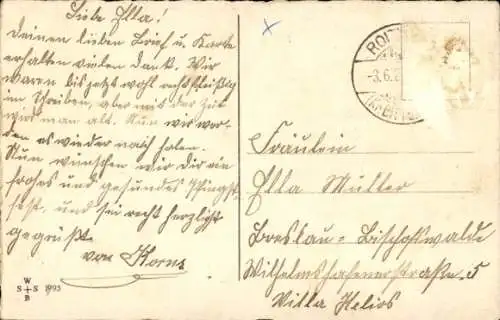 Liebe Ella!
Deinen lieben Brief u. Karte
erhalten vielen Dank. Wir
waren bis jetzt wohl recht fleißig
im Schreiben, aber mit der Zeit
wird man alt. Nun wir wer-
den es wieder nach holen.
Nun wünschen wir Dir ein
frohes und gesundes Pfingst-
fest, und sei recht herzlichst
gegrüßt
von Korns
W
S + S 1995
B
ROIT
-3.6.2
Fräulein
Ella Müller
Breslau - Bischofswalde
Wilhelmshafenerstraße. 5
Villa Helios